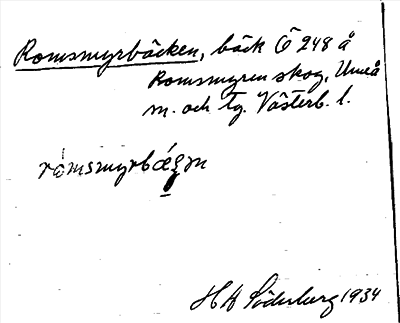 Romsmyrbäcken, bäck Ö 248 å
Romsmyren skog, Umeå
m. och tg. Västerb. l.
H A Söderberg 1934